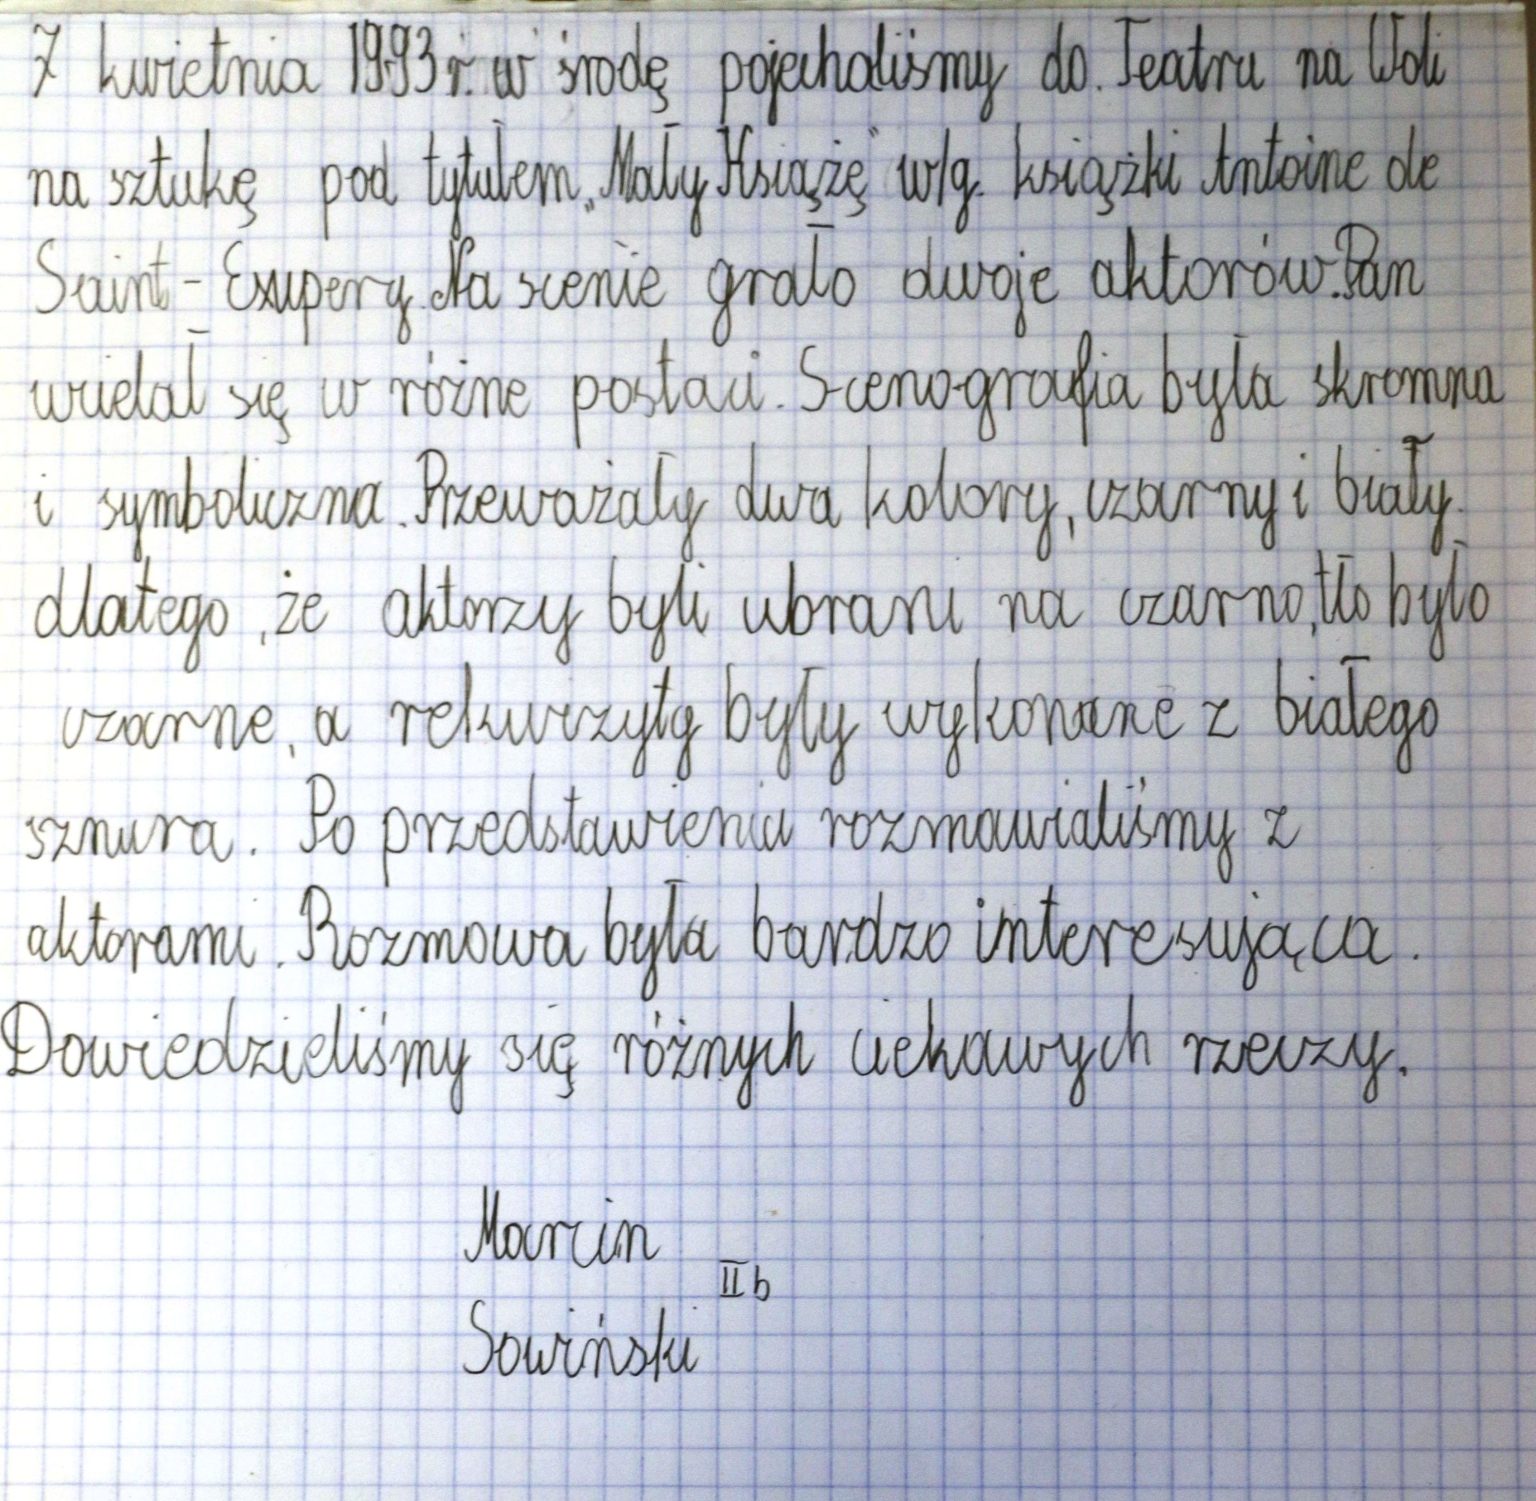 7 kwietnia 1993 r. w środę pojechaliśmy do. Teatru na Woli
na sztukę pod tytułem „Mały Książę" w/g. książki Antoine de
Saint-Exupery. Na scenie grało dwoje aktorów. Pan
wcielał się w różne postaci. Scenografia była skromna
i symboliczna. Przeważały dwa kolory, czarny i biały.
dlatego, że aktorzy byli ubrani na czarno, tło było
czarne, a rekwizyty były wykonane z białego
sznura. Po przedstawieniu rozmawialiśmy z
aktorami. Rozmowa była bardzo interesująca.
Dowiedzieliśmy się różnych ciekawych rzeczy.
Marcin
II b
Sowiński